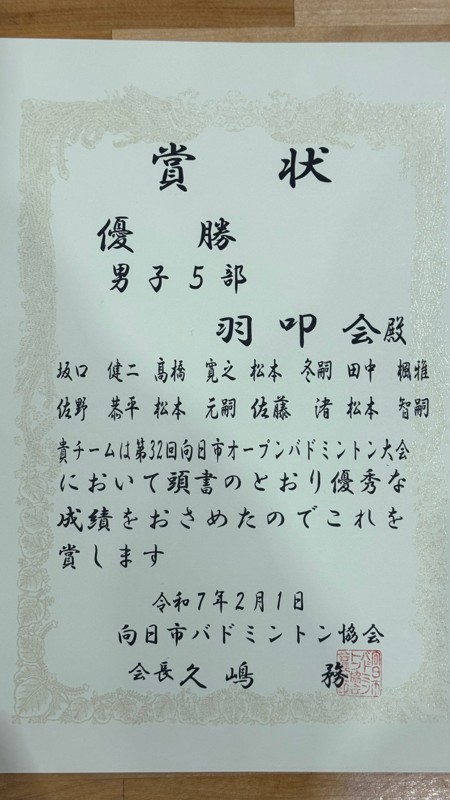 賞状
優勝
男子5部
羽叩会殿
坂口 健二 髙橋 寛之 松本 冬嗣 田中 楓雅
佐野 恭平 松本 元嗣 佐藤 渚 松本 智嗣
貴チームは第32回向日市オープンバドミントン大会
において頭書のとおり優秀な
成績をおさめたのでこれを
賞します
令和7年2月1日
向日市バドミントン協会
会長 久嶋 務